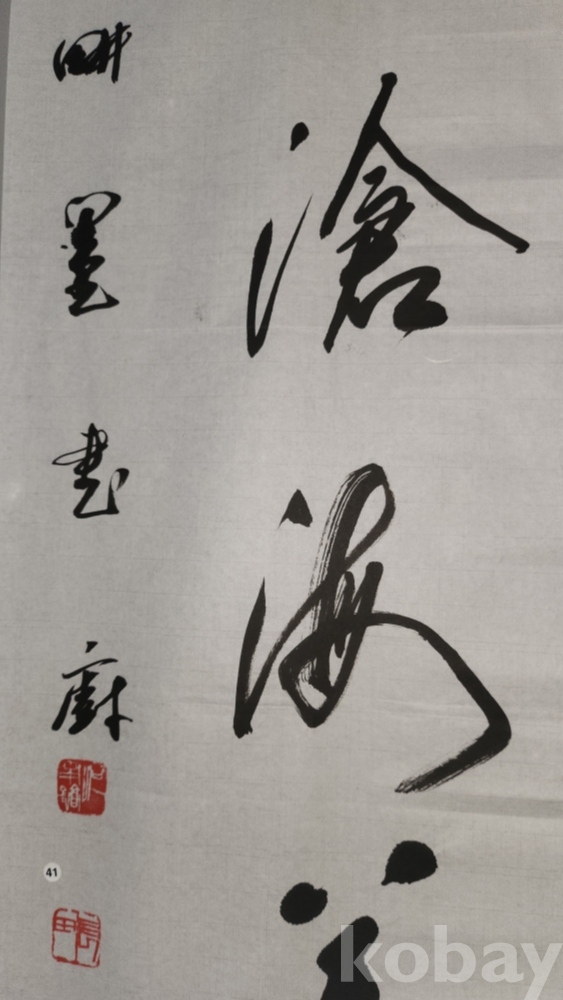 滄海
畊墨書廚
41
kobay